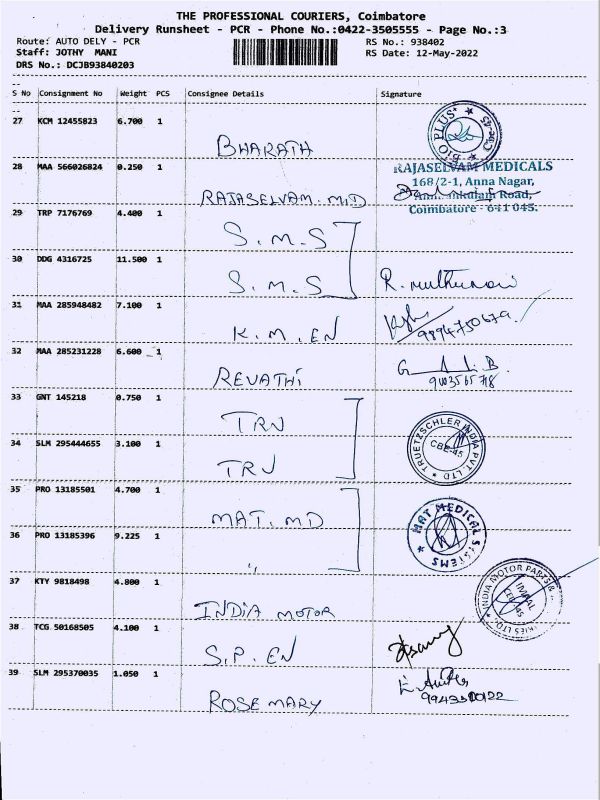 THE PROFESSIONAL COURIERS, Coimbatore
Delivery Runsheet - PCR - Phone No.:0422-3505555 - Page No.:3
Route: AUTO DELY - PCR RS No.: 938402
Staff: JOTHY MANI RS Date: 12-May-2022
DRS No.: DCJB93840203
S No Consignment No Weight PCS Consignee Details Signature
27 KCM 12455823 6.700 1
BHARATH
BIO PLUS * Cbe-45 *
28 MAA 566026824 0.250 1
RAJASELVAM. MD
RAJASELVAM MEDICALS
168/2-1, Anna Nagar,
Road,
Coimbatore - 641 045.
29 TRP 7176769 4.400 1
S.M.S
30 DDG 4316725 11.500 1
S.M.S
31 MAA 285948482 7.100 1
K.M.EN
9894750679
32 MAA 285231228 6.600 1
REVATHI
33 GNT 145218 0.750 1
TRN
34 SLM 295444655 3.100 1
TRV
* TRUETZSCHLER INDIA PVT. LTD *
CBE-45
35 PRO 13185501 4.700 1
MAT. MD
36 PRO 13185396 9.225 1
"
MAT MEDICAL SYSTEMS
37 KTY 9818498 4.800 1
INDIA MOTOR
INDIA MOTOR PARTS &
38 TCG 50168505 4.100 1
S.P. EN
39 SLM 295370035 1.050 1
ROSEMARY